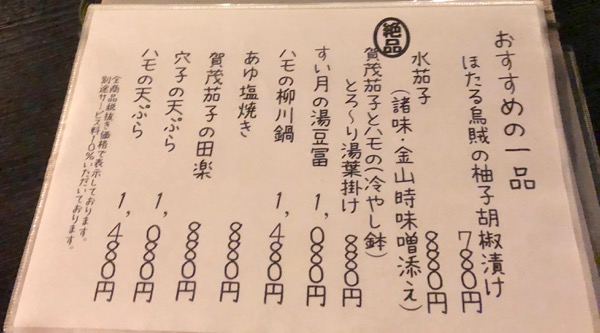 おすすめの一品
ほたる烏賊の柚子胡椒漬け 780円
水茄子 880円
(諸味・金山時味噌添え)
絶品
賀茂茄子とハモの(冷やし鉢)
とろ〜り湯葉掛け 880円
すい月の湯豆冨 1,080円
ハモの柳川鍋 1,480円
あゆ塩焼き 880円
賀茂茄子の田楽 880円
穴子の天ぷら 1,080円
ハモの天ぷら 1,480円
全商品税抜き価格で表示しております。
別途サービス料10%いただいております。